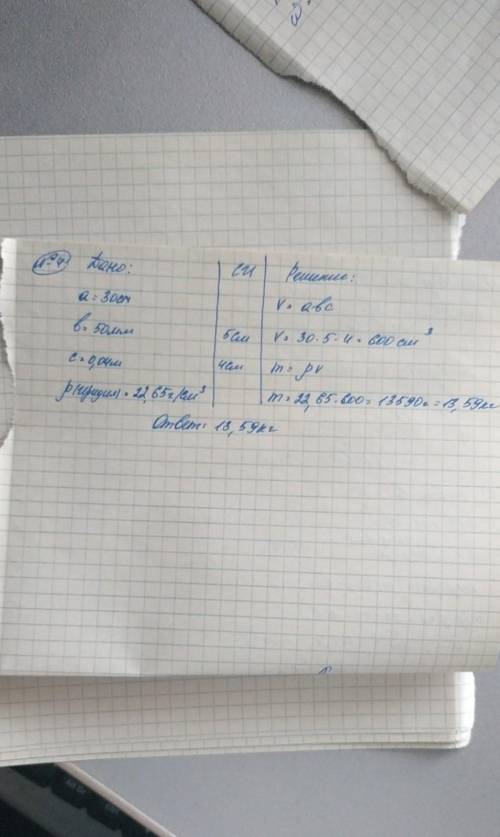 №4 Дано: СИ Решение:
a = 30см V = a·b·c
b = 50мм 5см V = 30·5·4 = 600 см³
c = 0,04м 4см m = ρV
ρ(иридия) = 22,65 г/см³ m = 22,65·600 = 13590г = 13,59кг
Ответ: 13,59кг